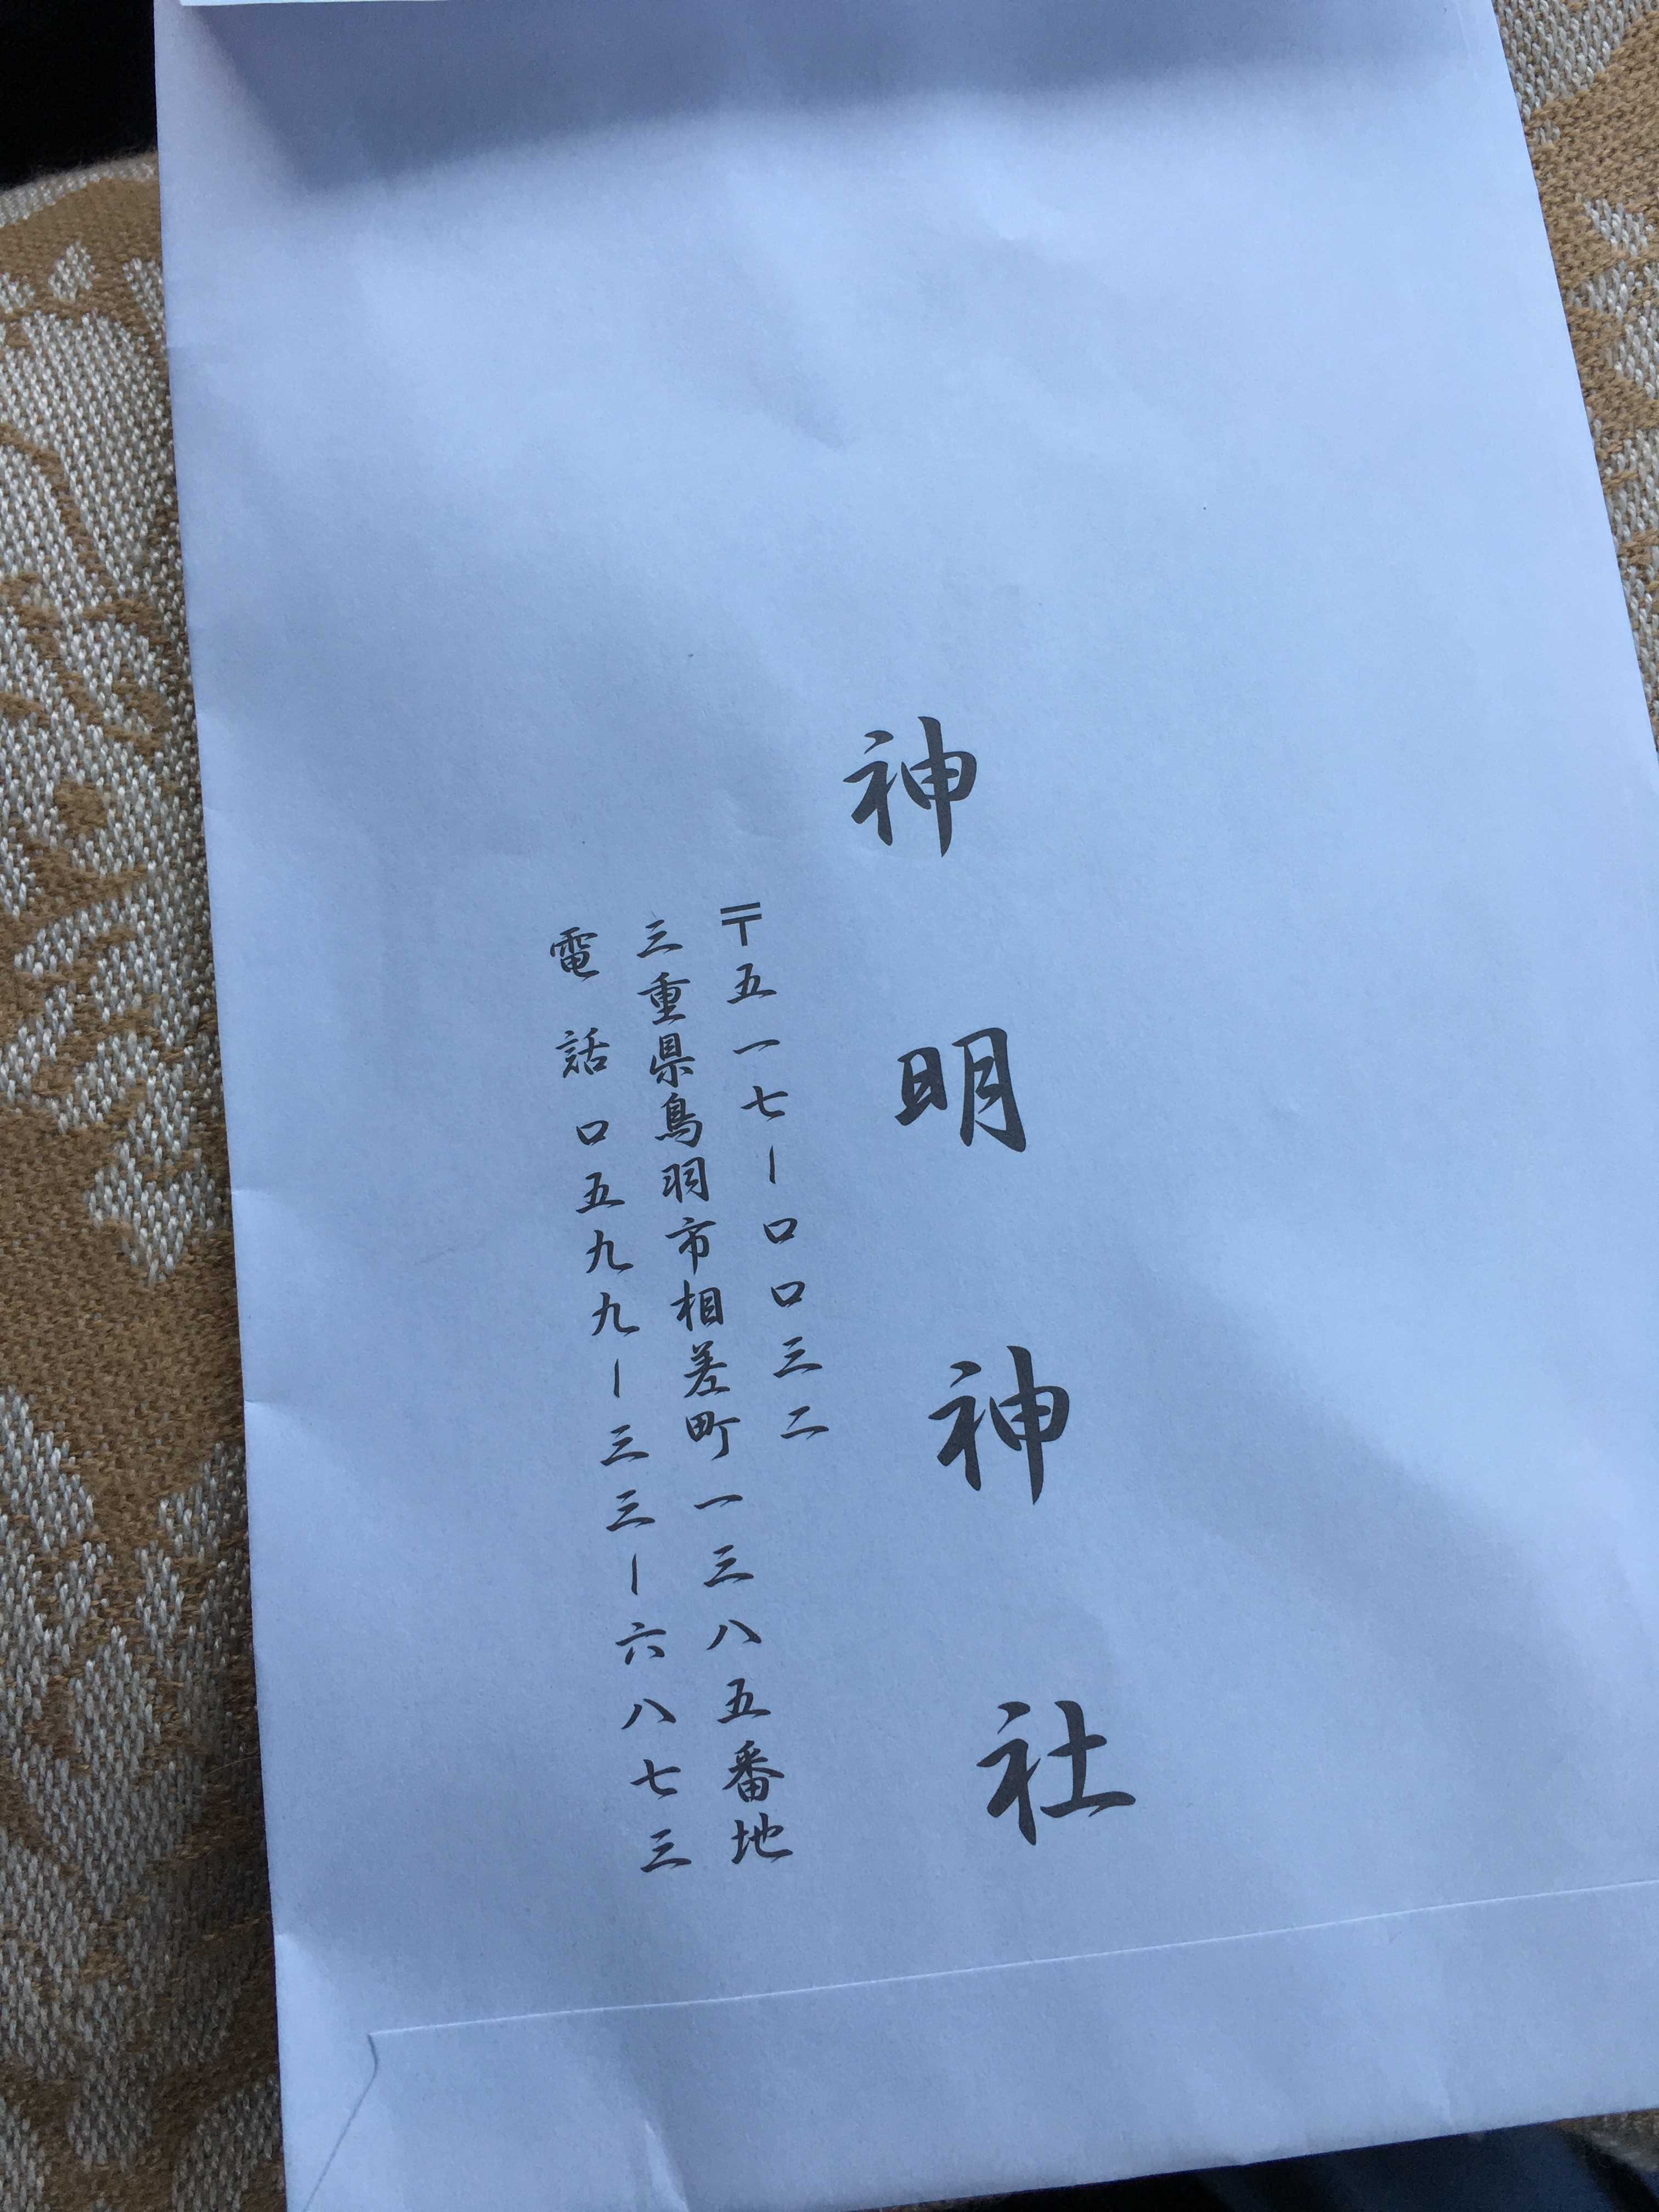 神明神社
〒五一七ー〇〇三二
三重県鳥羽市相差町一三八五番地
電話〇五九九ー三三ー六八七三